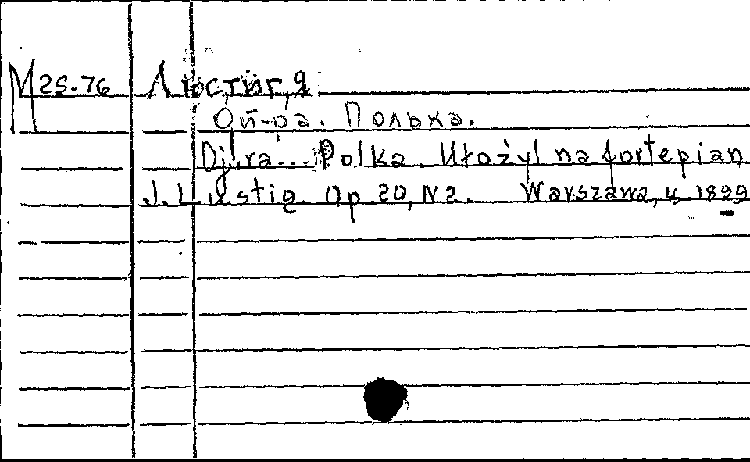 M 25-76 Люстиг, Я
Ой-ра. Полька.
Oj!ra... Polka. Ułożył na fortepian
J. Lustig. Op 20, N2. Warszawa, 1899